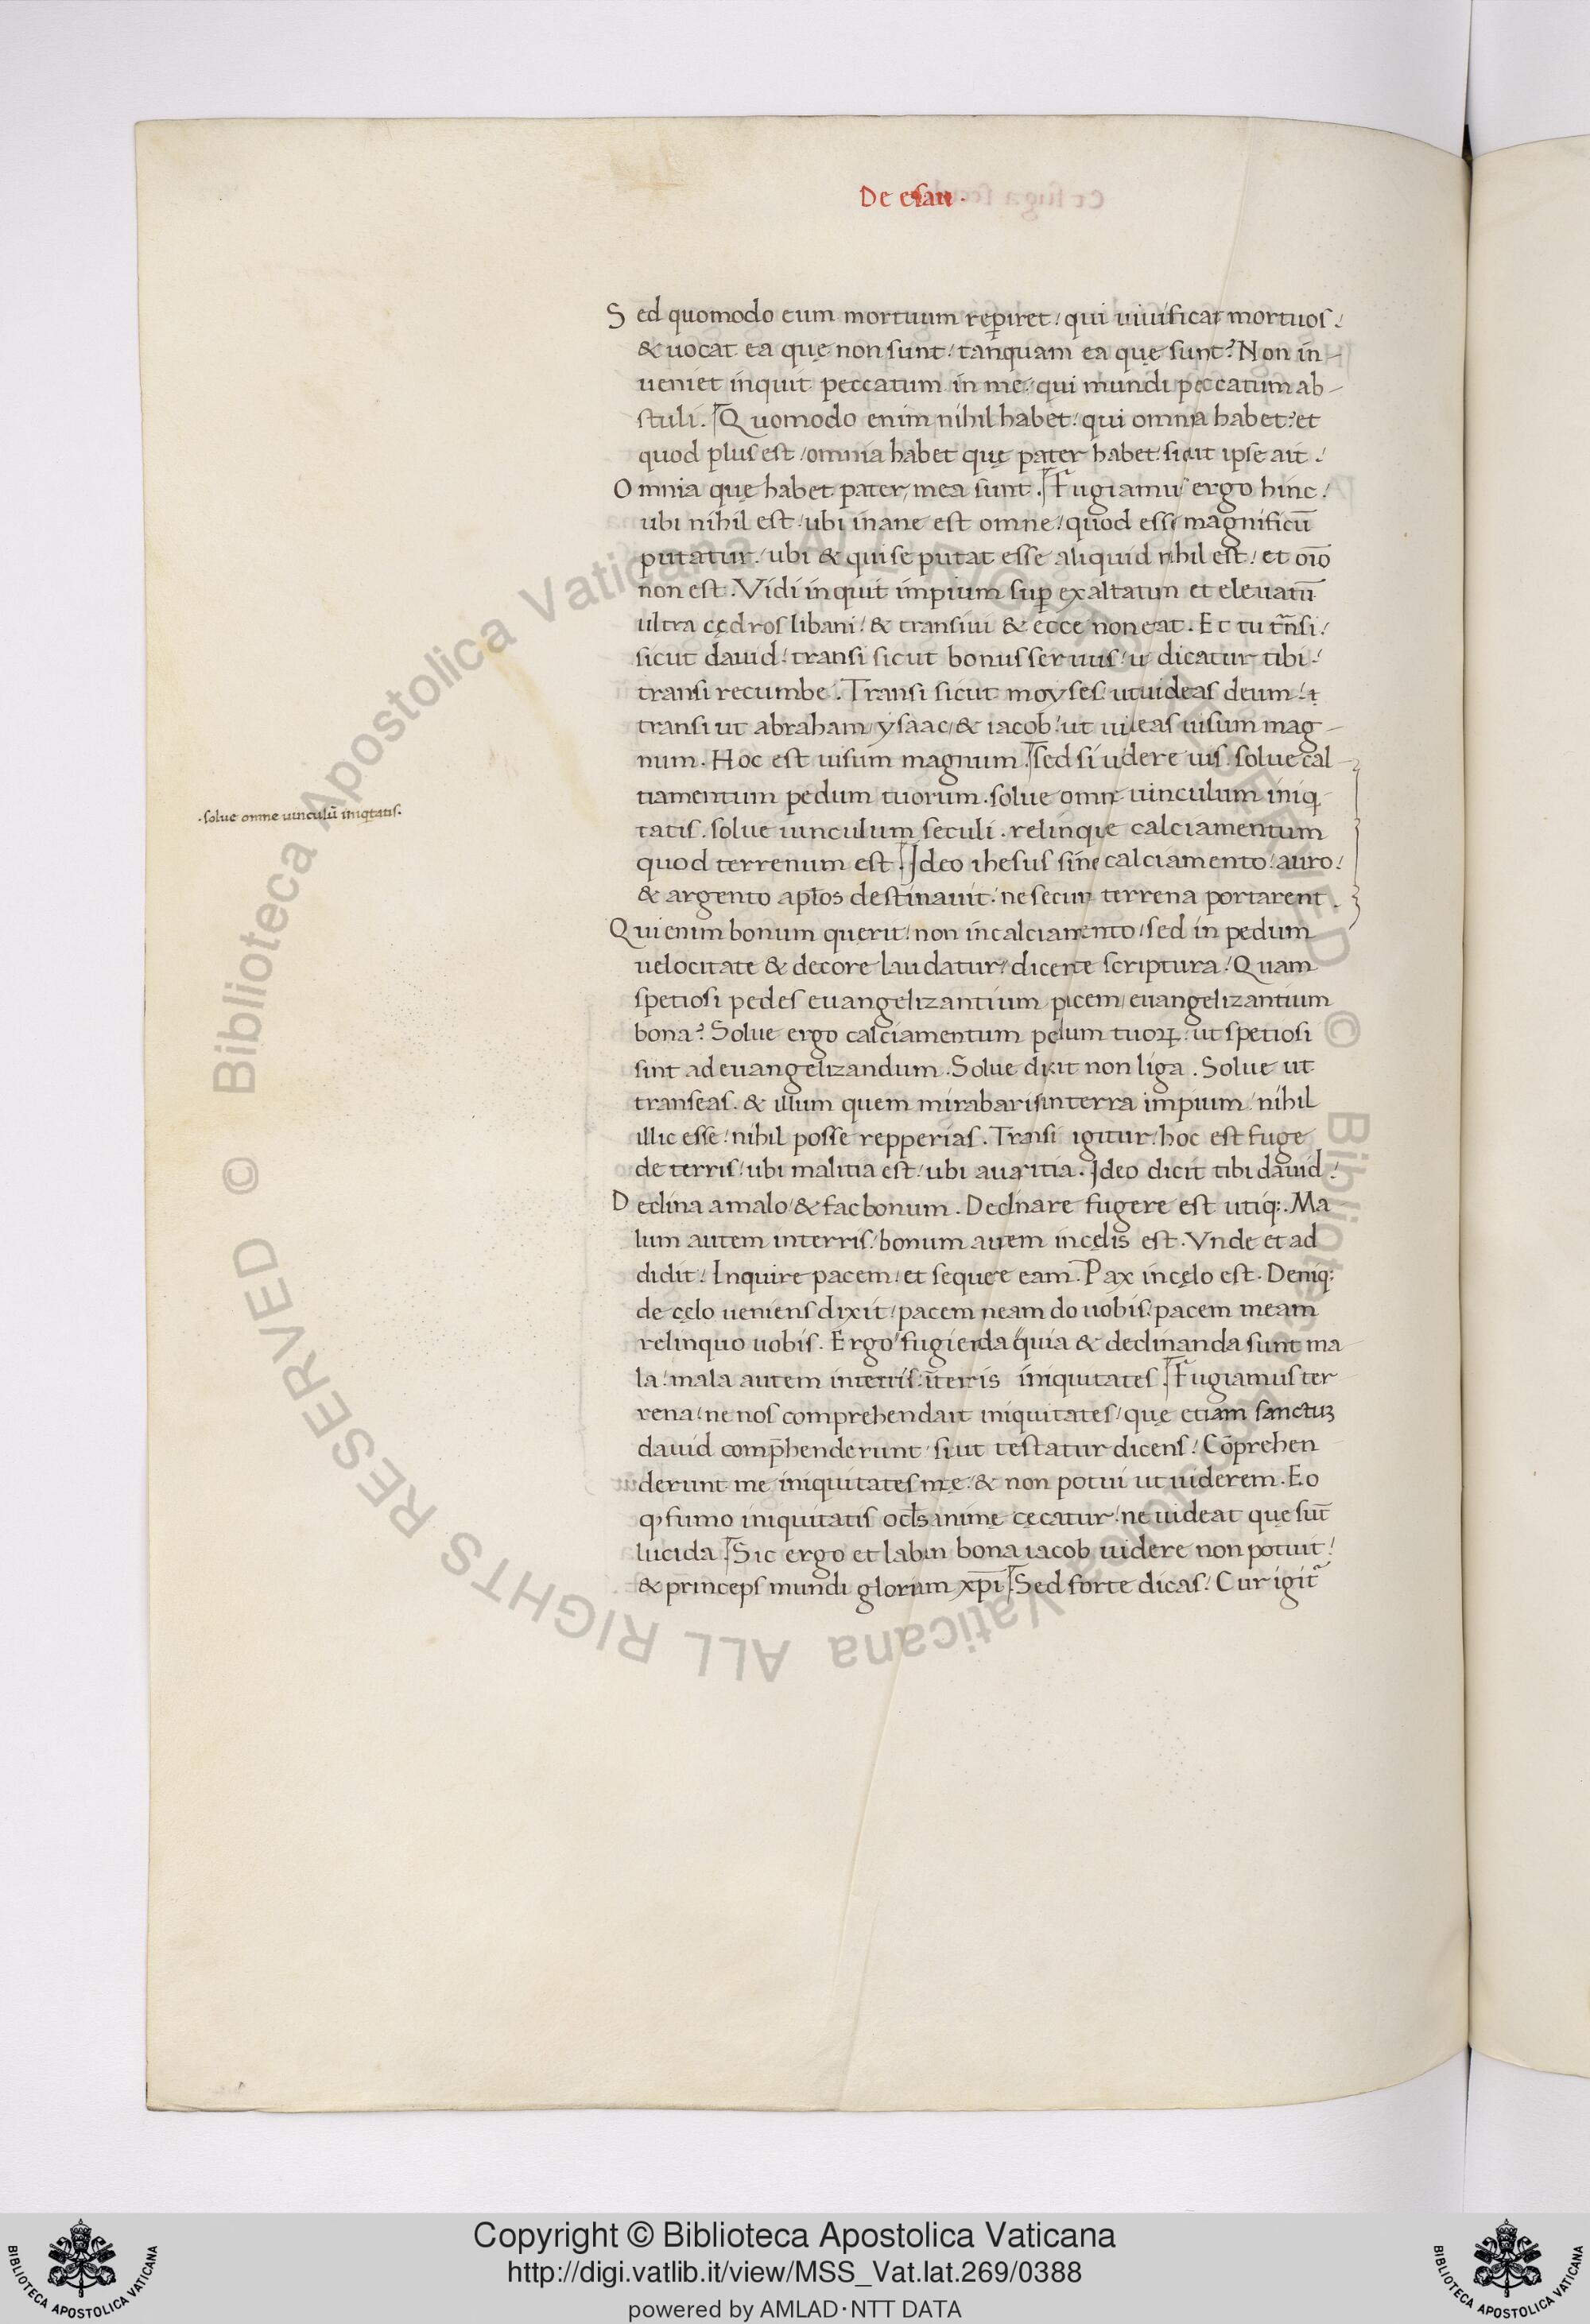 De esau.
Sed quomodo eum mortuum rep̲iret/ qui uiuificat mortuos/
& uocat ea quę non sunt/ tanquam ea quę sunt? Non in-
ueniet inquit peccatum in me/ qui mundi peccatum ab-
stuli. Quomodo enim nihil habet/ qui omnia habet? et
quod plus est/ omnia habet quę pater habet/ sicut ipse ait/
Omnia quę habet pater/ mea sunt. Fugiamus ergo hinc/
ubi nihil est/ ubi inane est omne/ quod esse magnificū
putatur/ ubi & qui se putat esse aliquid nihil est/ et oīo
non est. Vidi inquit impium sup̲ exaltatum et eleuatū
ultra cędros libani/ & transiui & ecce non erat. Et tu trānsi/
sicut dauid/ transi sicut bonus seruus/ ut dicatur tibi/
transi recumbe. Transi sicut moyses/ ut uideas deum/ ⁊
transi ut abraham/ ysaac/ & iacob/ ut uideas uisum mag-
num. Hoc est uisum magnum. sed si uidere uis. solue cal-
tiamentum pedum tuorum. solue omne uinculum iniq-
.solue omne uinculū iniqtatis.
tatis. solue uinculum seculi. relinque calciamentum
quod terrenum est. Ideo ihesus sine calciamento/ auro/
& argento apl̄os destinauit/ ne secum terrena portarent.
Qui enim bonum querit/ non in calciamento/ sed in pedum
uelocitate & decore laudatur/ dicente scriptura/ Quam
spetiosi pedes euangelizantium pacem/ euangelizantium
bona? Solue ergo calciamentum pedum tuoꝝ/ ut spetiosi
sint ad euangelizandum. Solue dixit non liga. Solue ut
transeas. & illum quem mirabaris in terra impium/ nihil
illic esse/ nihil posse repperias. Transi igitur/ hoc est fuge
de terris/ ubi malitia est/ ubi auaritia. Ideo dicit tibi dauid/
Declina a malo/ & fac bonum. Declinare fugere est utiq:. Ma-
lum autem in terris/ bonum autem in cęlis est. Vnde et ad
didit/ Inquire pacem/ et sequere eam. Pax in cęlo est. Deniq:
de cęlo ueniens dixit/ pacem meam do uobis/ pacem meam
relinquo uobis. Ergo fugienda quia & declinanda sunt ma-
la/ mala autem in terris/ ī terris iniquitates. Fugiamus ter-
rena/ ne nos comprehendant iniquitates/ quę etiam sanctuꝫ
dauid comp̄henderunt/ sicut testatur dicens/ Cōprehen
derunt me iniquitates meę/ & non potui ut uiderem. Eo
ꝙ fumo iniquitatis ocl̄s animę cęcatur/ ne uideat quę sūt
lucida. Sic ergo et laban bona iacob uidere non potuit/
& princeps mundi gloriam xp̄i. Sed forte dicas/ Cur igit᷑
Copyright © Biblioteca Apostolica Vaticana
http://digi.vatlib.it/view/MSS_Vat.lat.269/0388
powered by AMLAD·NTT DATA
BIBLIOTECA APOSTOLICA VATICANA
BIBLIOTECA APOSTOLICA VATICANA
© Biblioteca Apostolica Vaticana ALL RIGHTS RESERVED
© Biblioteca Apostolica Vaticana ALL RIGHTS RESERVED